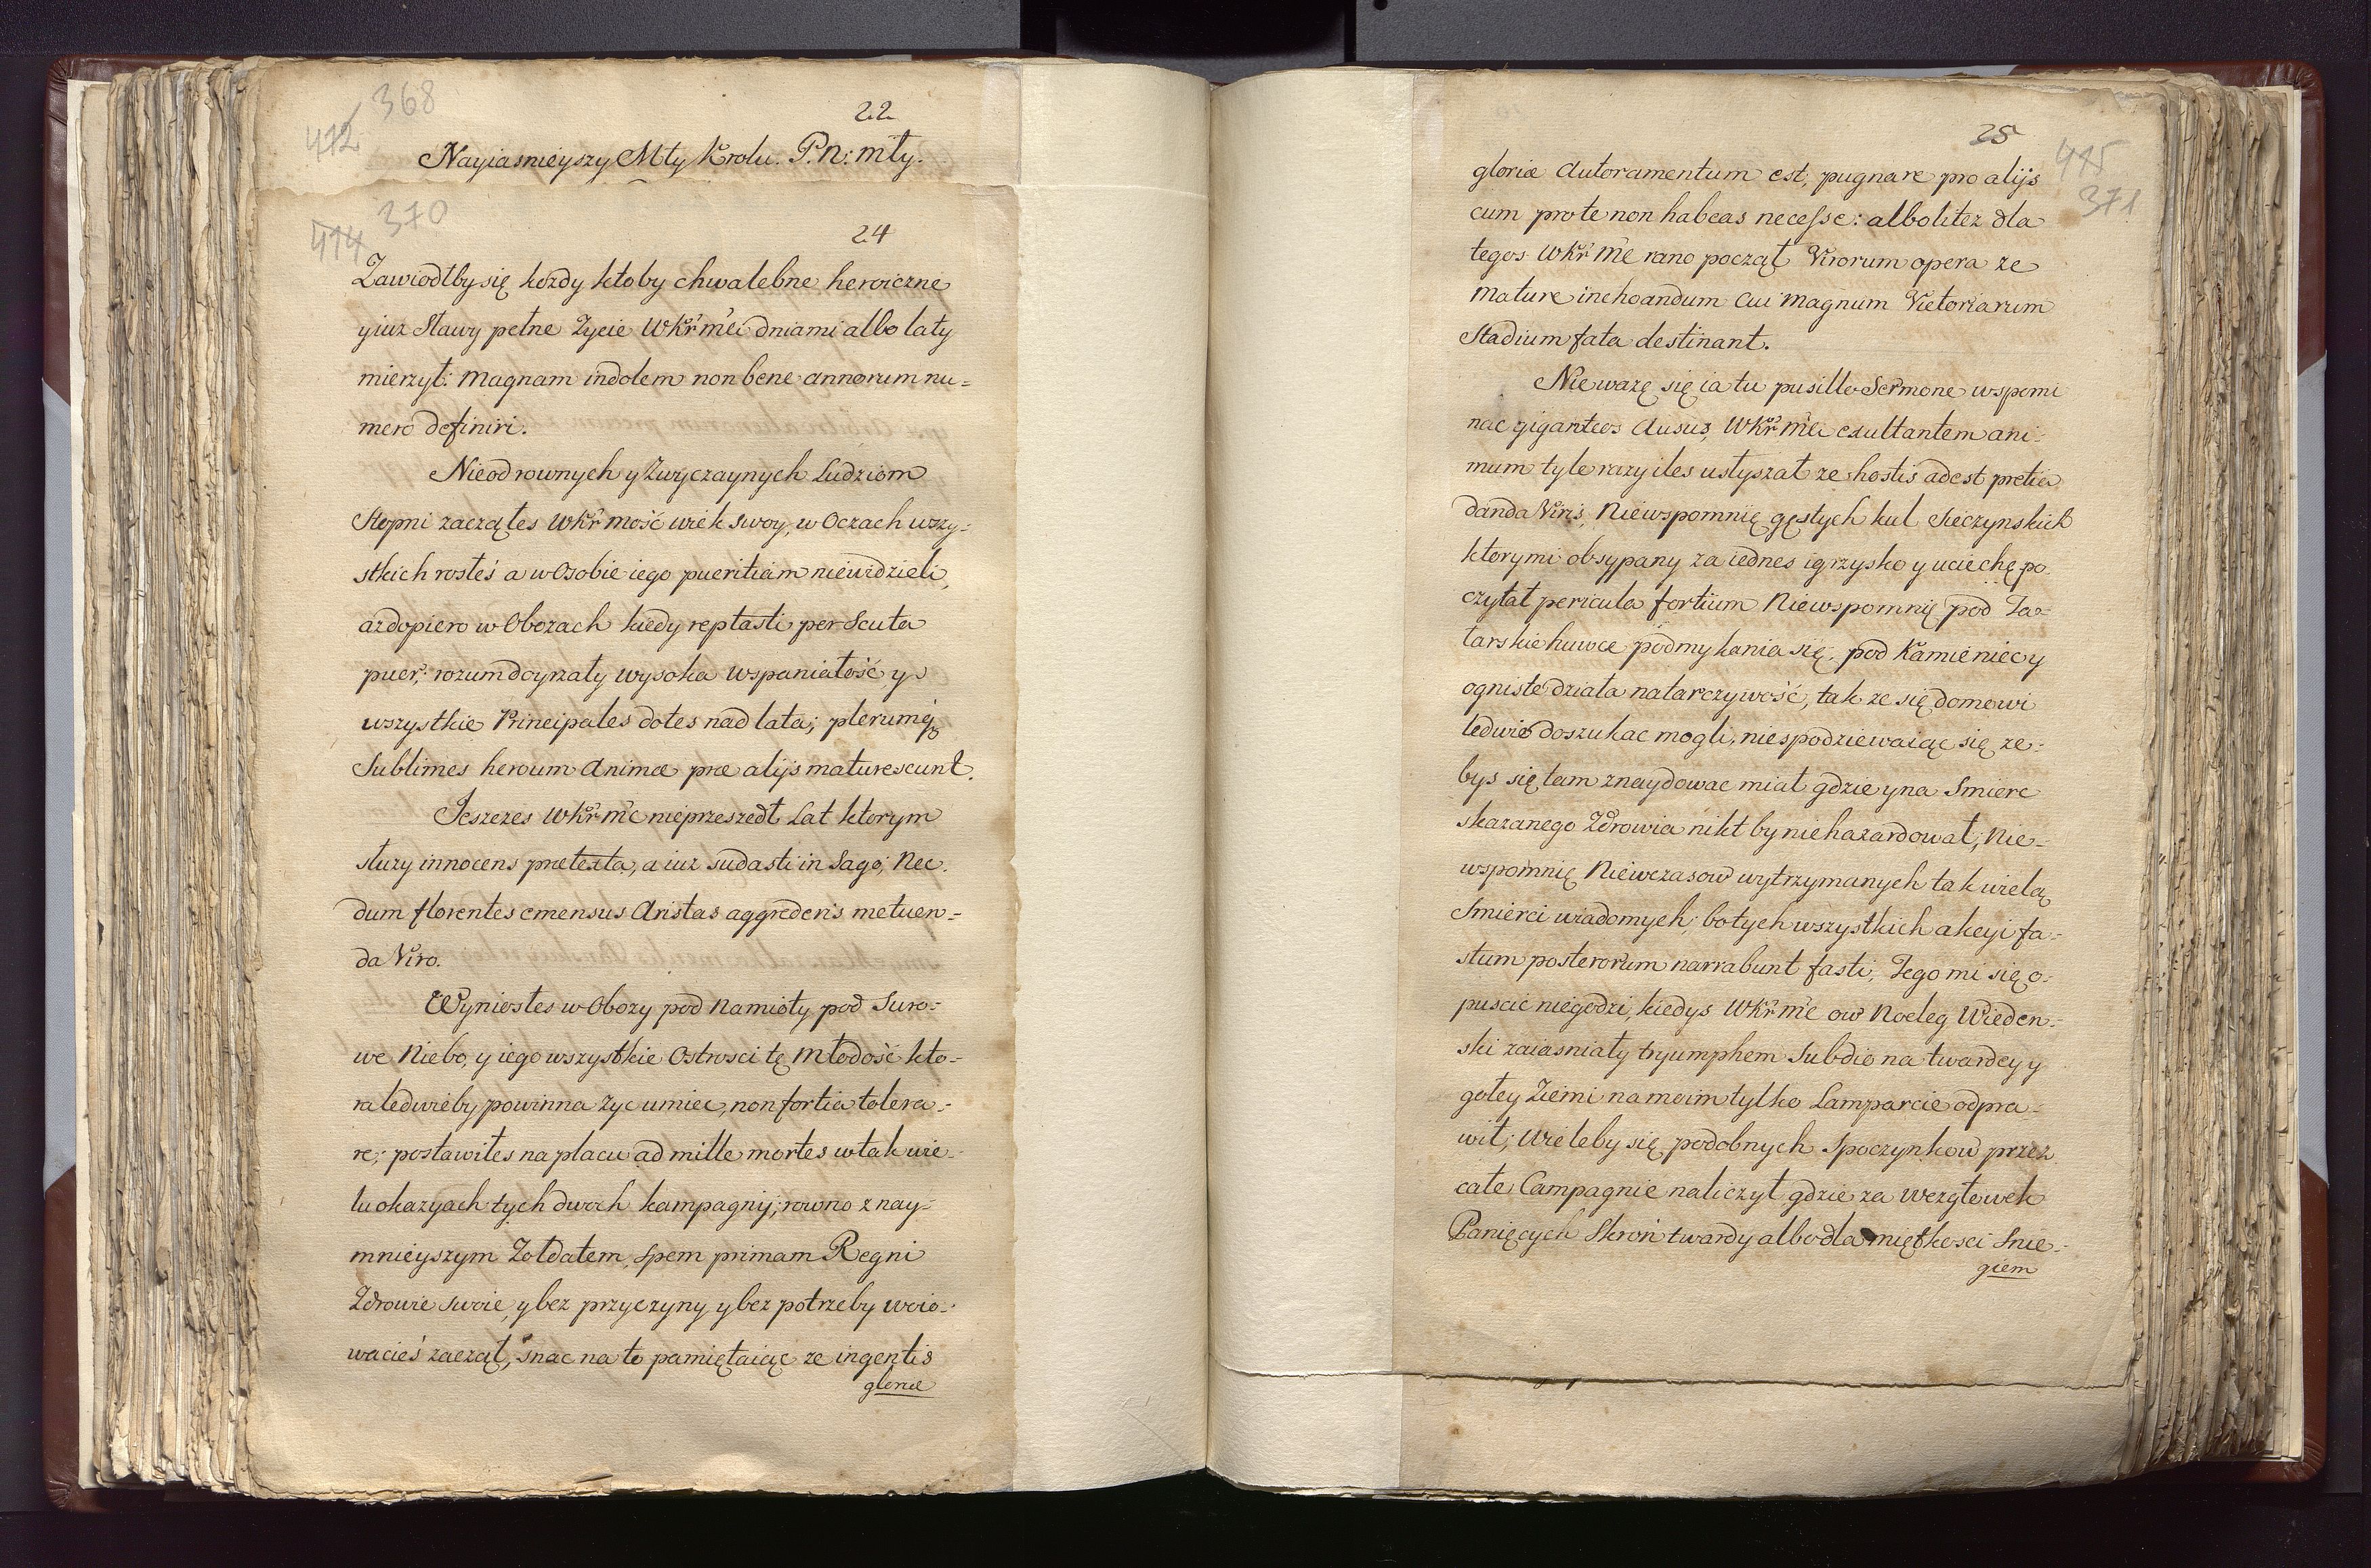 368
412
22
Nayiasnieyszy Mty Krolu. P. n: mty.
370
414
24
Zawiodłby się kożdy ktoby chwalebne heroiczne
yiuz Sławy pełne Zycie WKr̃ m̃ci dniami albo laty
mierzył: magnam indolem non bene annorum nu=
mero definiri.
Nieod rownych y Zwyczaynych Ludziom
Stopni zacząłes WKr̃ mość wiek swoy, w Oczach wszy=
stkich rosłeś a w Osobie iego pueritiam niewidzieli,
azdopiero w Obozach kiedy reptasti per Scuta
puer; rozum doyrzały wysoka wspaniałość y
wszystkie Principales dotes nad lata; plerumq;
Sublimes heroum Animæ præ alijs maturescunt.
Jeszczes WKr̃ m̃c nieprzeszedł Lat ktorym
służy innocens prætexta, a iuz sudasti in Sago; Nec
dum florentes emensus Aristas aggrederis metuen=
da Viro.
Wyniosłes w Obozy pod Namioty pod Suro=
we Niebo, y iego wszystkie Ostrosci tę Młodość kto=
ra ledwieby powinna zyc umiec, non fortia tolera=
re; postawiłes na placu ad mille mortes w tak wie=
lu okazyach tych dwoch kampagnij; rowno z nay=
mnieyszym Zołdatem, Spem primam Regni
Zdrowie swoie, y bez przyczyny y bez potrzeby woio=
wacieś zaczął, snac na to pamiętaiąc ze ingentis
gloriæ
25
415
371
gloriæ Autoramentum est, pugnare pro alijs
cum pro te non habeas necesse: albo litez dla
tegos WKr̃ m̃c rano począł Virorum opera ze
mature inchoandum cui magnum Victoriarum
Stadium fata destinant.
Niewazę się ia tu pusillo Sermone wspomi
nac giganteos Ausus, WKr̃ m̃ci exultantem ani=
mum tyle razy iles usłyszał ze hostis adest pretia
danda Viris, Niewspomnię gęstych kul Sieczynskich
ktorymi obsypany za iednes igrzysko y uciechę po
czytał pericula fortium Niewspomnię pod Ta=
tarskie huwce podmykania się, pod Kamieniec y
ogniste działa natarczywość, tak ze się domowi
ledwie doszukac mogli, niespodziewaiąc się ze=
bys się tam znaydowac miał gdzie y na Smierc
skazanego Zdrowia nikt by niehazardował; Nie=
wspomnię Niewczasow wytrzymanych tak wielą
Smierci wiadomych; bo tych wszystkich akcyi fa=
stum posterorum narrabunt fasti, Tego mi się o=
puscic niegodzi, kiedys WKr̃ m̃c ow Nocleg Wieden=
ski zaiasniały tryumphem Subdio na twardey y
gołey Ziemi na moim tylko Lamparcie odpra=
wił; Wieleby się podobnych Spoczynkow przez
całe Campagnie naliczył gdzie za wezgłowek
Panięcych Skroń twardy albo dla miętkosci Snie=
giem